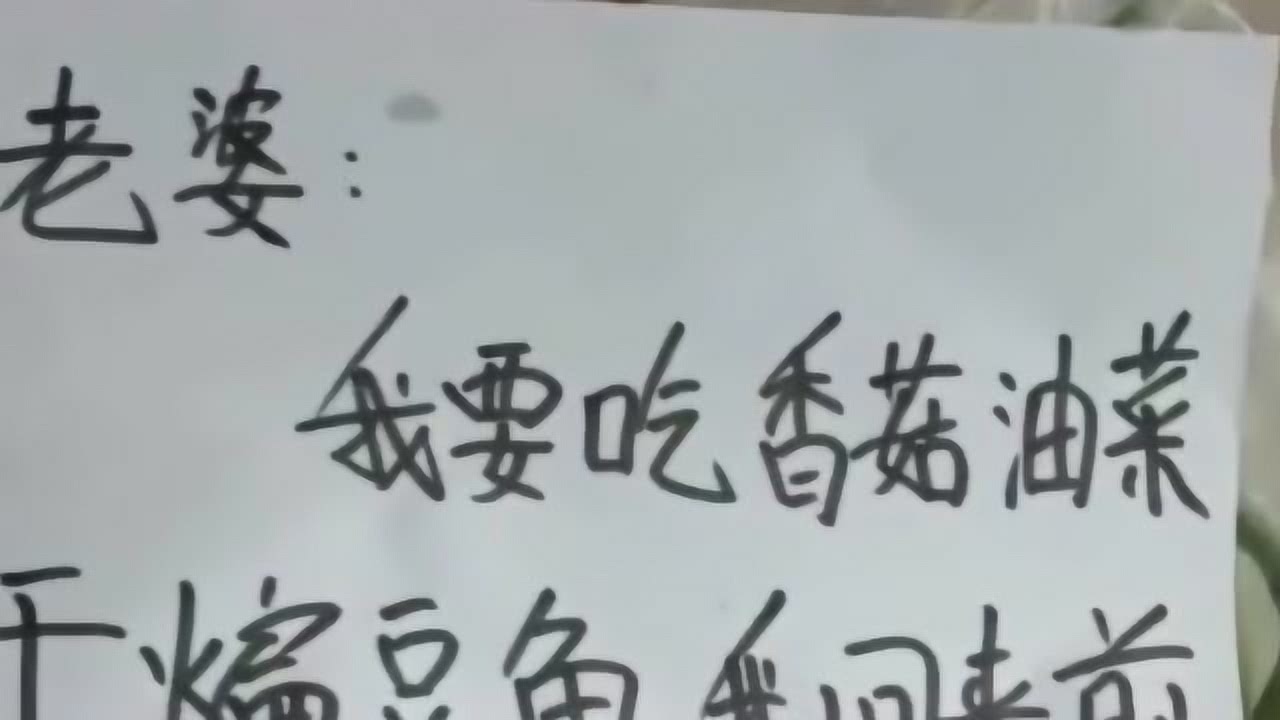 老婆:
我要吃香菇油菜
干煸豆角我回来前